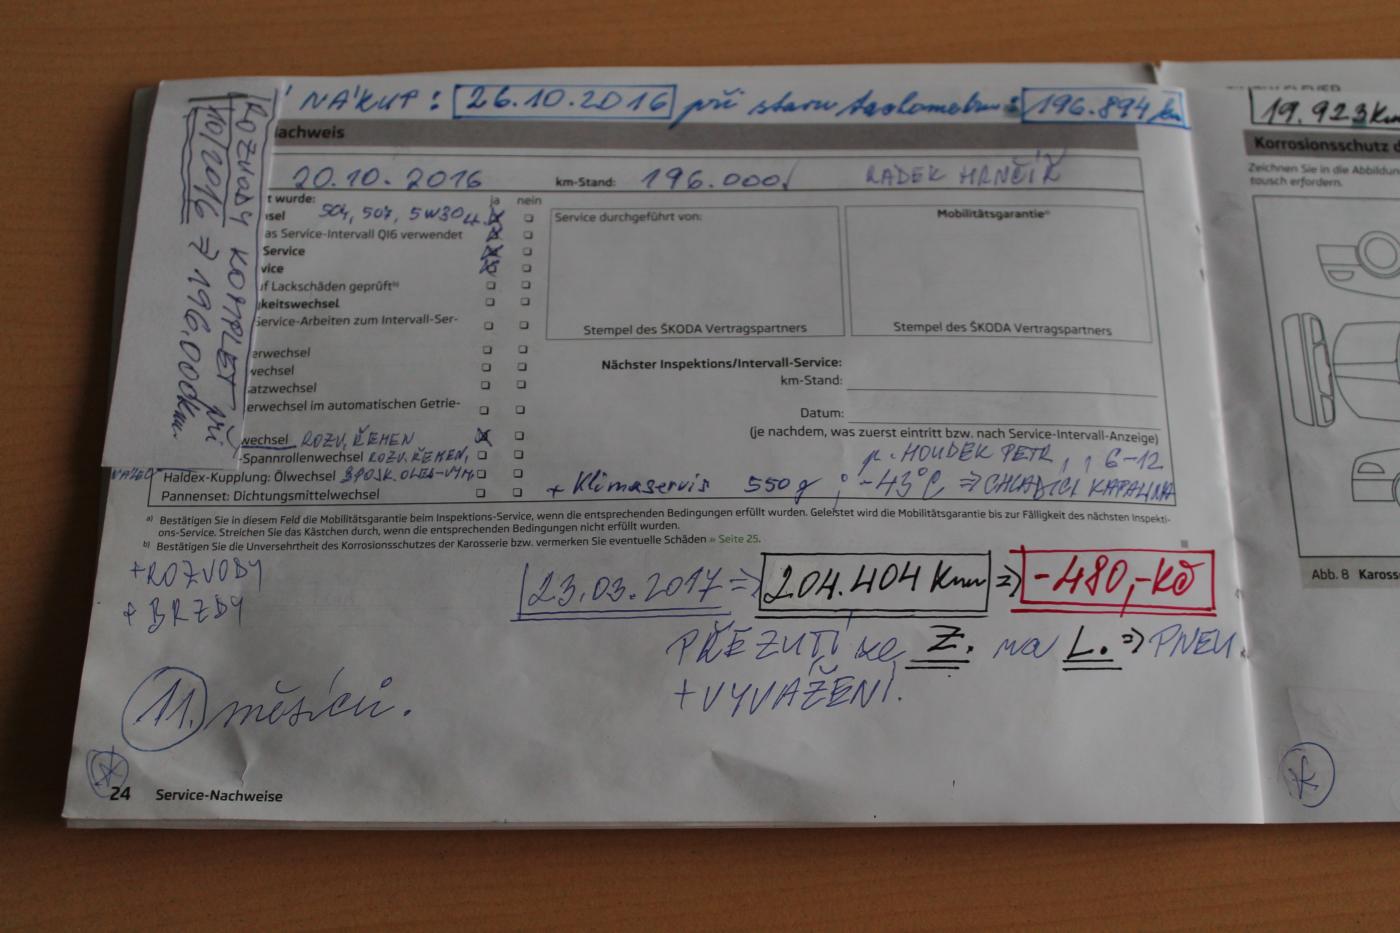 NÁKUP: 26.10.2016 při stavu tachometru: 196.894 km
ROZVODY KOMPLET při
10/2016 => 196.000km.
achweis
20.10.2016 km-Stand: 196.000,- RADEK HRNČÍŘ
t wurde: ja nein
sel 504, 507, 5W30
as Service-Intervall QI6 verwendet
Service
vice
uf Lackschäden geprüft b)
keitswechsel
Service-Arbeiten zum Intervall-Ser-
erwechsel
wechsel
atzwechsel
erwechsel im automatischen Getrie-
wechsel ROZV, ŘEMEN
-Spannrollenwechsel ROZV. ŘEMEN,
Haldex-Kupplung: Ölwechsel
Pannenset: Dichtungsmittelwechsel
Service durchgeführt von:
Stempel des ŠKODA Vertragspartners
Mobilitätsgarantie a)
Stempel des ŠKODA Vertragspartners
Nächster Inspektions/Intervall-Service:
km-Stand:
Datum:
(je nachdem, was zuerst eintritt bzw. nach Service-Intervall-Anzeige)
p. HOUDEK PETR, , 6-12
+ Klimaservis 550g ; -43°C => CHLADÍCÍ KAPALINA
a) Bestätigen Sie in diesem Feld die Mobilitätsgarantie beim Inspektions-Service, wenn die entsprechenden Bedingungen erfüllt wurden. Geleistet wird die Mobilitätsgarantie bis zur Fälligkeit des nächsten Inspekti-
ons-Service. Streichen Sie das Kästchen durch, wenn die entsprechenden Bedingungen nicht erfüllt wurden.
b) Bestätigen Sie die Unversehrtheit des Korrosionsschutzes der Karosserie bzw. vermerken Sie eventuelle Schäden » Seite 25.
+ROZVODY
+ BRZDY
23.03.2017 => 204.404 Km => -480,-Kč
PŘEZUTÍ ze Z. na L. => PNEU
+VYVÁŽENÍ.
11. měsíců.
24 Service-Nachweise
19.923 Km
Korrosionsschutz d
Zeichnen Sie in die Abbildun
tausch erfordern.
Abb. 8 Kaross